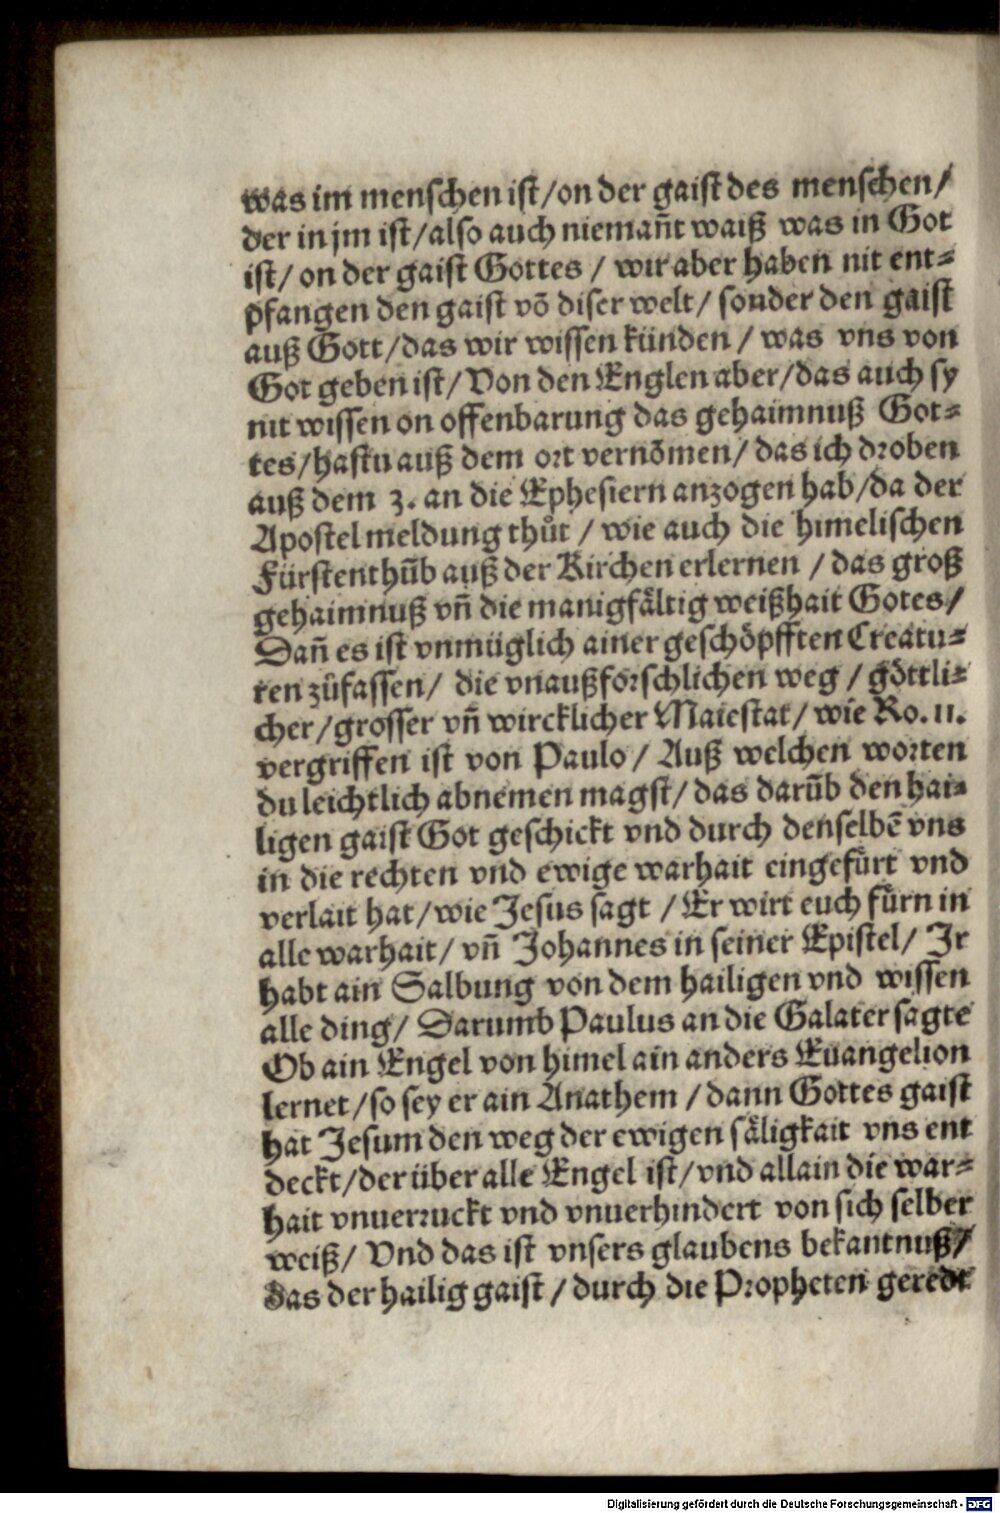 was im menschen ist/on der gaist des menschen/
der in jm ist/also auch niemañt waiß was in Got
ist/ on der gaist Gottes / wir aber haben nit ent=
pfangen den gaist võ diser welt/ sonder den gaist
auß Gott/das wir wissen künden / was vns von
Got geben ist/Von den Englen aber/das auch sy
nit wissen on offenbarung das gehaimnuß Got=
tes/hastu auß dem ort vernõmen/ das ich droben
auß dem 3. an die Ephesiern anzogen hab/da der
Apostel meldung thůt / wie auch die himelischen
Fürstenthũb auß der Kirchen erlernen / das groß
gehaimnuß vñ die manigfältig weißhait Gotes/
Dañ es ist vnmüglich ainer geschöpfften Creatu=
ren zůfassen/ die vnaußforschlichen weg / göttli=
cher/grosser vñ wircklicher Maiestat/ wie Ro. 11.
vergriffen ist von Paulo / Auß welchen worten
du leichtlich abnemen magst/ das darũb den hai=
ligen gaist Got geschickt vnd durch denselbẽ vns
in die rechten vnd ewige warhait eingefürt vnd
verlait hat/wie Jesus sagt / Er wirt euch fürn in
alle warhait/ vñ Johannes in seiner Epistel/ Jr
habt ain Salbung von dem hailigen vnd wissen
alle ding/ Darumb Paulus an die Galater sagte
Ob ain Engel von himel ain anders Euangelion
lernet/so sey er ain Anathem / dann Gottes gaist
hat Jesum den weg der ewigen säligkait vns ent
deckt/der über alle Engel ist/vnd allain die war=
hait vnuerruckt vnd vnuerhindert von sich selber
weiß/ Vnd das ist vnsers glaubens bekantnuß/
das der hailig gaist / durch die Propheten geredt
Digitalisierung gefördert durch die Deutsche Forschungsgemeinschaft - DFG